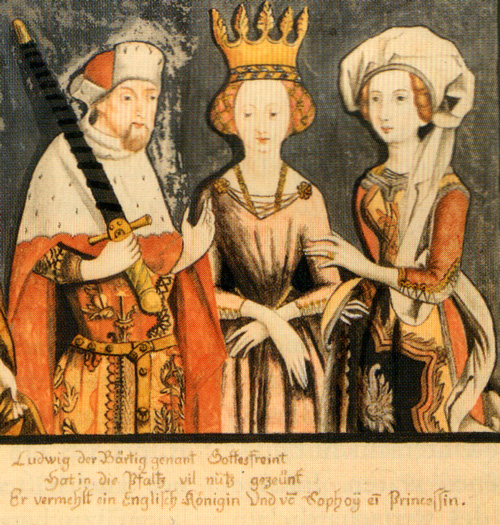 Ludwig der Bärtig genant Gottesfreint
Hat in die Pfaltz vil nütz gezeünt
Er vermehlt ein Englisch Königin Und vō Sophoÿ eī Princessin.